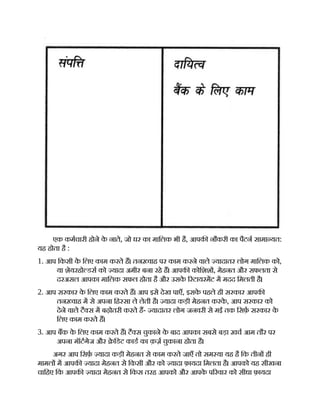 संपत्ति
दायित्व
बैंक के लिए काम
एक कर्मचारी होने के नाते, जो घर का मालिक भी है, आपकी नौकरी का पैटर्न सामान्यत:
यह होता है :
1. आप किसी के लिए काम करते हैं। तनख़्वाह पर काम करने वाले ज़्यादातर लोग मालिक को,
या शेयरहोल्डर्स को ज़्यादा अमीर बना रहे हैं। आपकी कोशिशों, मेहनत और सफलता से
दरअसल आपका मालिक सफल होता है और उसके रिटायरमेंट में मदद मिलती है।
2. आप सरकार के लिए काम करते हैं। आप इसे देख पाएँ, इसके पहले ही सरकार आपकी
तनख़्वाह में से अपना हिस्सा ले लेती है। ज़्यादा कड़ी मेहनत करके, आप सरकार को
देने वाले टैक्स में बढ़ोतरी करते हैं- ज़्यादातर लोग जनवरी से मई तक सिर्फ़ सरकार के
लिए काम करते हैं।
3. आप बैंक के लिए काम करते हैं। टैक्स चुकाने के बाद आपका सबसे बड़ा खर्च आम तौर पर
अपना मॉर्टगेज और क्रेडिट कार्ड का क़र्ज़ चुकाना होता है।
अगर आप सिर्फ़ ज़्यादा कड़ी मेहनत से काम करते जाएँ तो समस्या यह है कि तीनों ही
मामलों में आपकी ज़्यादा मेहनत से किसी और को ज़्यादा फ़ायदा मिलता है। आपको यह सीखना
चाहिए कि आपकी ज़्यादा मेहनत से किस तरह आपको और आपके परिवार को सीधा फ़ायदा